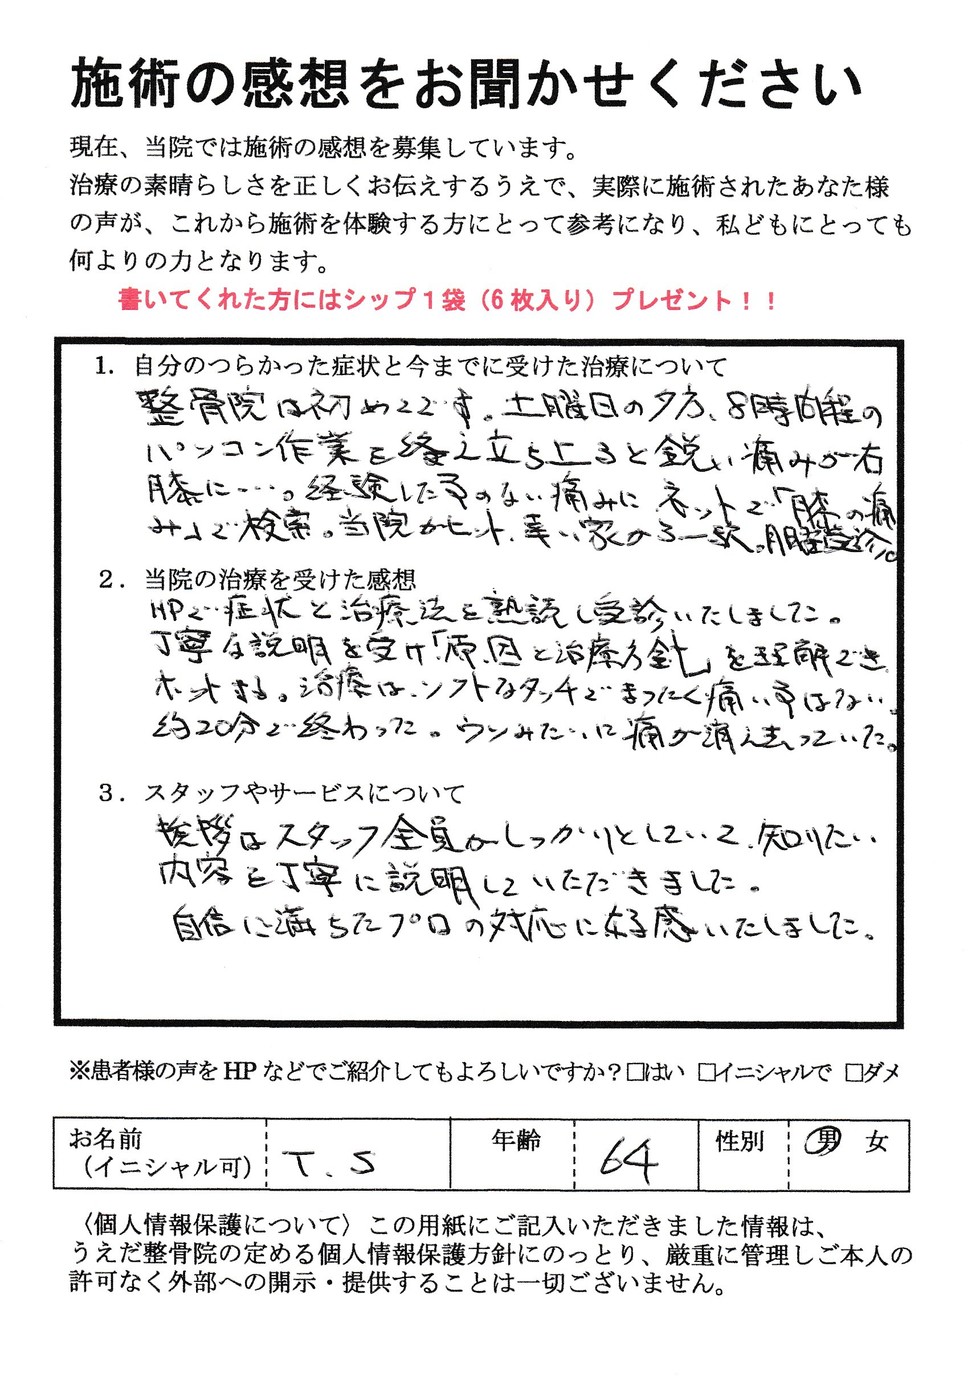 施術の感想をお聞かせください
現在、当院では施術の感想を募集しています。
治療の素晴らしさを正しくお伝えするうえで、実際に施術されたあなた様
の声が、これから施術を体験する方にとって参考になり、私どもにとっても
何よりの力となります。
書いてくれた方にはシップ１袋（6 枚入り）プレゼント！！
1. 自分のつらかった症状と今までに受けた治療について
整骨院は初めてです。土曜日の夕方、8時間程の
パソコン作業を終え立ち上ると鋭い痛みが右
膝に…。経験した事のない痛みにネットで「膝の痛
み」で検索。当院がヒット、幸い家から一駅。月曜受診。
２．当院の治療を受けた感想
HPで症状と治療法を熟読し受診いたしました。
丁寧な説明を受け「原因と治療方針」を理解でき
ホットする。治療は、ソフトなタッチでまったく痛い事はない。
約20分で終わった。ウソみたいに痛が消え去っていた。
３．スタッフやサービスについて
挨拶はスタッフ全員がしっかりとしていて、知りたい
内容を丁寧に説明していただきました。
自信に満ちたプロの対応に好感いたしました。
※患者様の声を HP などでご紹介してもよろしいですか？□はい □イニシャルで □ダメ
お名前 年齢 性別 男 女
（イニシャル可） T.S 64
〈個人情報保護について〉この用紙にご記入いただきました情報は、
うえだ整骨院の定める個人情報保護方針にのっとり、厳重に管理しご本人の
許可なく外部への開示・提供することは一切ございません。